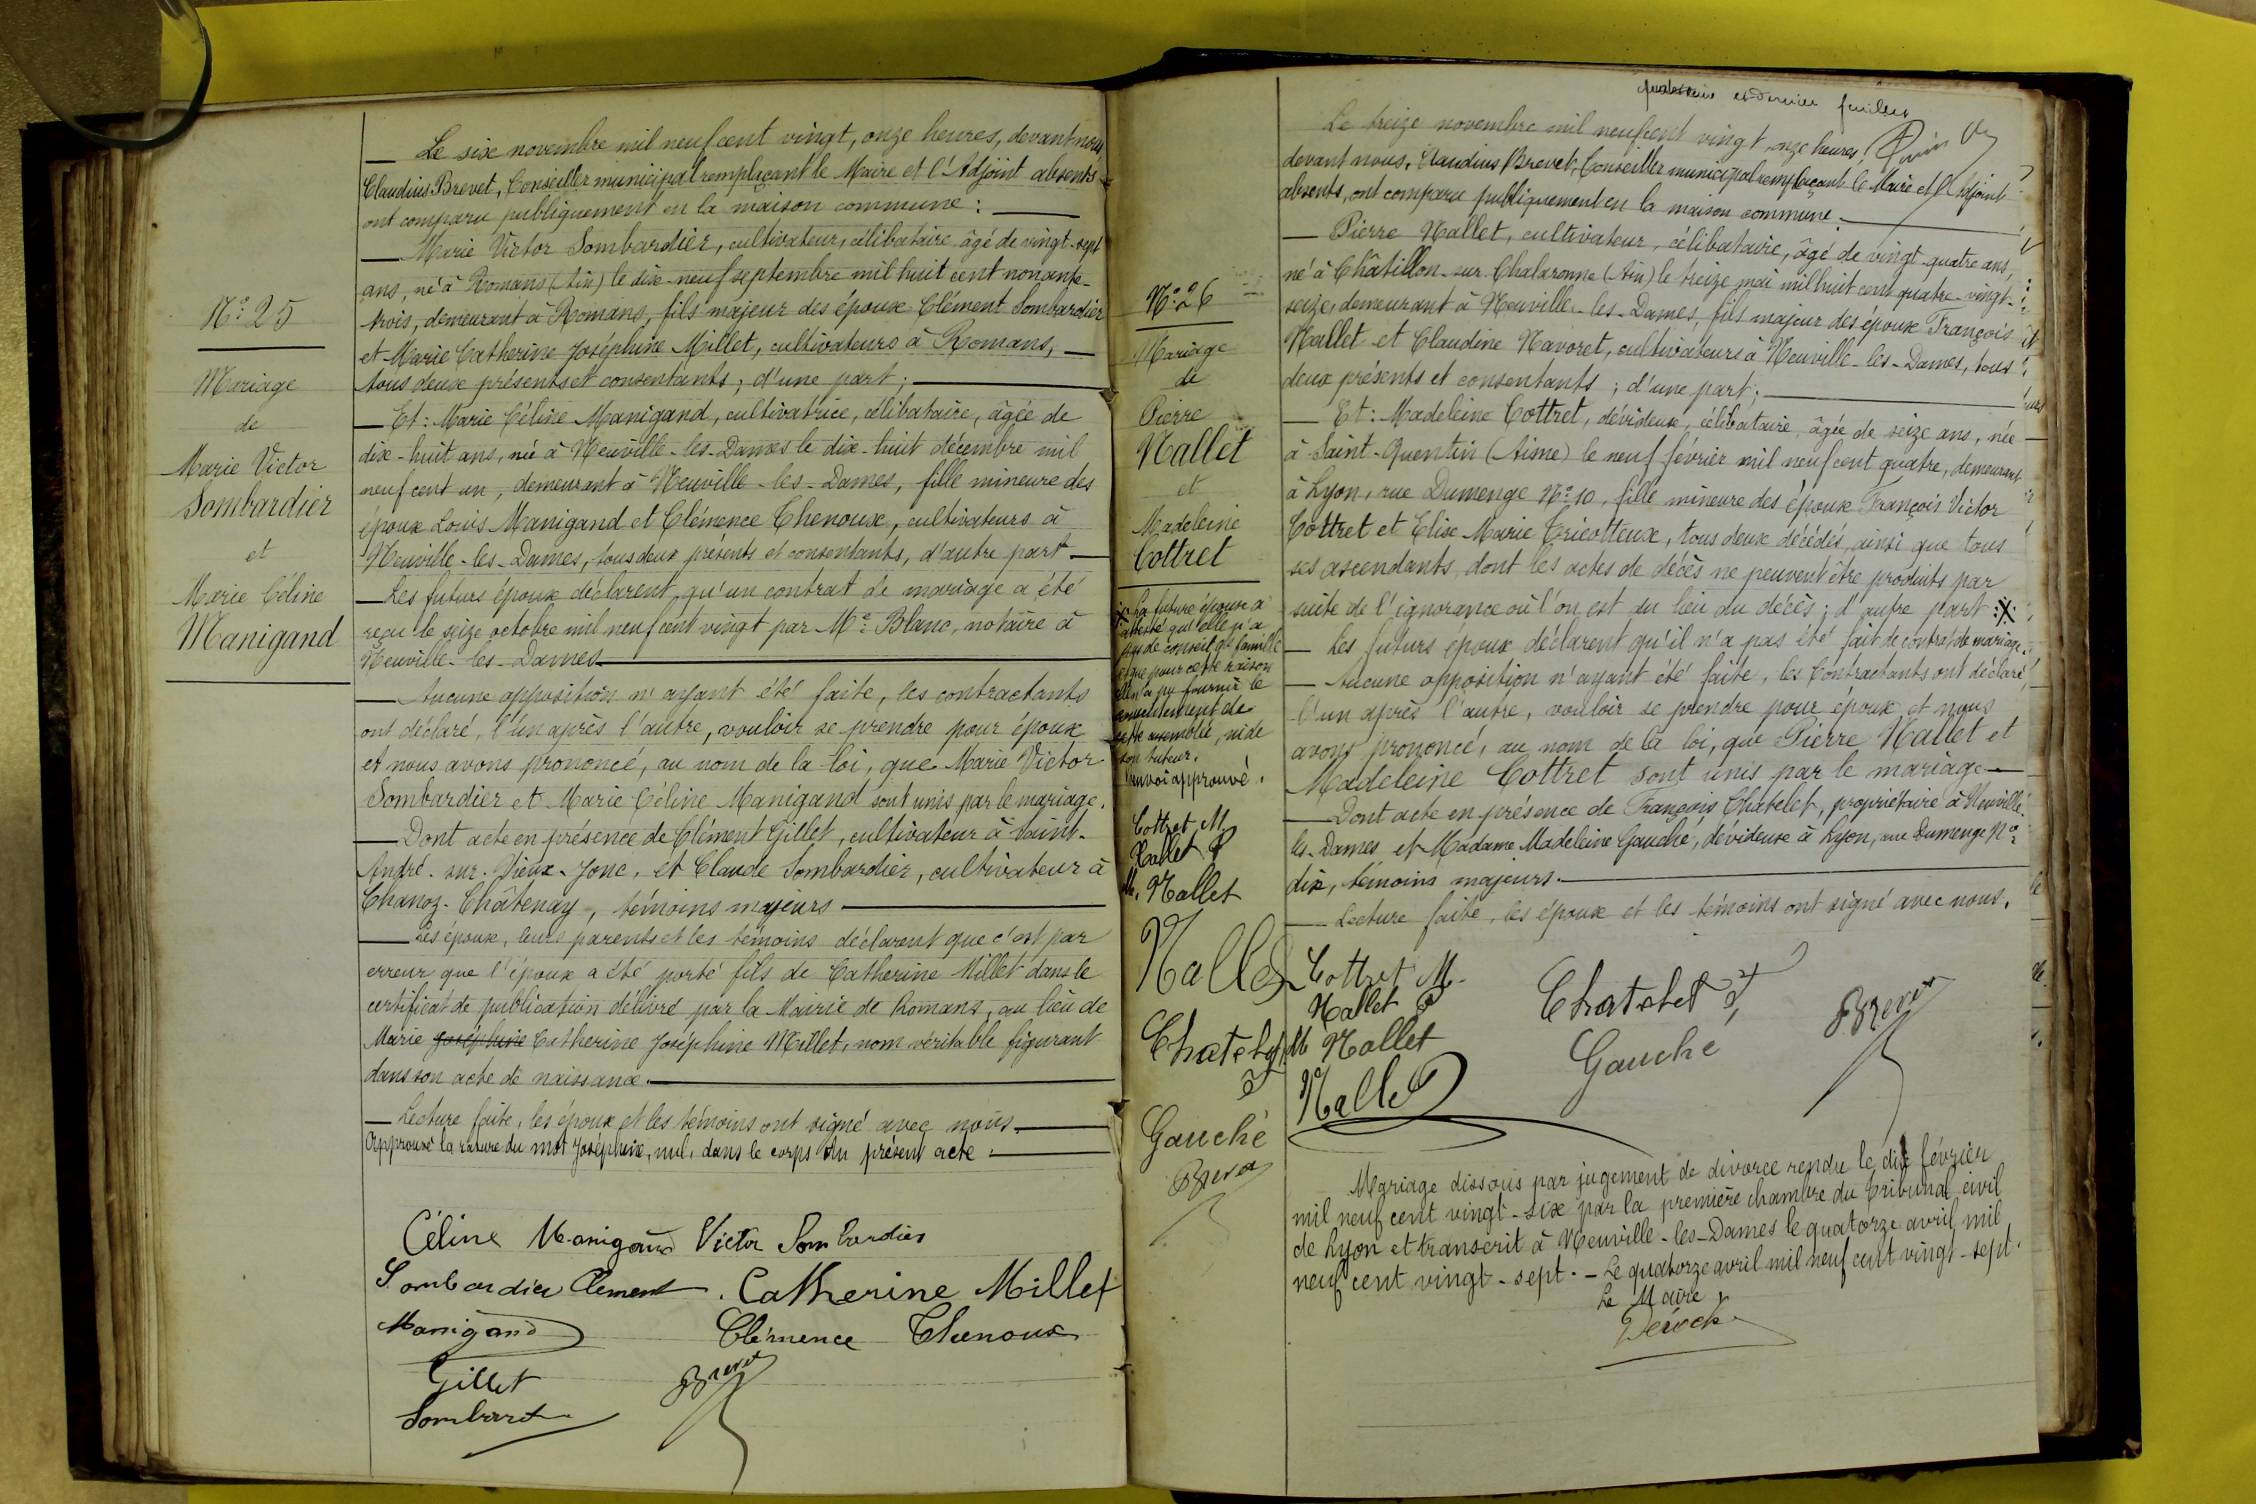 Le six novembre mil neuf cent vingt, onze heures, devant nous
Claudius Brevet, Conseiller municipal remplaçant le Maire et l'Adjoint absents
ont comparu publiquement en la maison commune :
Marie Victor Sombardier, cultivateur, célibataire âgé de vingt-sept
ans, né à Romans (Ain) le dix-neuf septembre mil huit cent nonante-
trois, demeurant à Romans, fils majeur des époux Clément Sombardier
et Marie Catherine Joséphine Millet, cultivateurs à Romans,
tous deux présents et consentants ; d'une part ;
Et : Marie Céline Manigand, cultivatrice, célibataire, âgée de
dix-huit ans, née à Neuville-les-Dames le dix-huit décembre mil
neuf cent un, demeurant à Neuville-les-Dames, fille mineure des
époux Louis Manigand et Clémence Thenoux, cultivateurs à
Neuville-les-Dames, tous deux présents et consentants, d'autre part
Les futurs époux déclarent qu'un contrat de mariage a été
reçu le seize octobre mil neuf cent vingt par Me Blanc, notaire à
Neuville-les-Dames
Aucune opposition n'ayant été faite, les contractants
ont déclaré, l'un après l'autre, vouloir se prendre pour époux
et nous avons prononcé, au nom de la loi, que Marie Victor
Sombardier et Marie Céline Manigand sont unis par le mariage.
Dont acte en présence de Clément Gillet, cultivateur à Saint-
André-sur-Vieux-Jonc, et Claude Sombardier, cultivateur à
Chanoz-Châtenay, témoins majeurs
Les époux, leurs parents et les témoins déclarent que c'est par
erreur que l'époux a été porté fils de Catherine Millet dans le
certificat de publication délivré par la Mairie de Romans, au lieu de
Marie Joséphine Catherine Joséphine Millet, nom véritable figurant
dans son acte de naissance.
Lecture faite, les époux et les témoins ont signé avec nous.
Approuvé la rature du mot Joséphine, nul, dans le corps du présent acte.
Céline Manigand Victor Sombardier
Sombardier Clément. Catherine Millet
Manigand Clémence Thenoux
Gillet Brevet
Sombard
N° 25
Mariage
de
Marie Victor
Sombardier
et
Marie Céline
Manigand
N° 26
Mariage
de
Pierre
Nallet
et
Madeleine
Cottret
La future épouse a
attesté qu'elle n'a
pas de conseil de famille
et que pour cette raison
elle n'a pu fournir le
consentement de
cette assemblée, ni de
son tuteur.
Renvoi approuvé.
Cottret M
Nallet P
M. Nallet
Nallet
Chatelet
Gauché
Brevet
et dernier feuillet
Le treize novembre mil neuf cent vingt onze heures,
devant nous, Claudius Brevet, Conseiller municipal remplaçant le Maire et l'Adjoint
absents, ont comparu publiquement en la maison commune.
Pierre Nallet, cultivateur, célibataire, âgé de vingt-quatre ans,
né à Châtillon-sur-Chalaronne (Ain) le treize mai mil huit cent quatre-vingt-
seize, demeurant à Neuville-les-Dames, fils majeur des époux François
Nallet et Claudine Navoret, cultivateurs à Neuville-les-Dames, tous
deux présents et consentants ; d'une part ;
Et : Madeleine Cottret, dévideuse, célibataire âgée de seize ans, née
à Saint-Quentin (Aisne) le neuf février mil neuf cent quatre, demeurant
à Lyon, rue Dumenge N° 10, fille mineure des époux François Victor
Cottret et Elise Marie Tricotteux, tous deux décédés, ainsi que tous
ses ascendants, dont les actes de décès ne peuvent être produits par
suite de l'ignorance où l'on est du lieu du décès ; d'autre part :
Les futurs époux déclarent qu'il n'a pas été fait de contrat de mariage.
Aucune opposition n'ayant été faite, les Contractants ont déclaré,
l'un après l'autre, vouloir se prendre pour époux et nous
avons prononcé, au nom de la loi, que Pierre Nallet et
Madeleine Cottret sont unis par le mariage
Dont acte en présence de François Chatelet, propriétaire à Neuville-
les-Dames et Madame Madeleine Gauché, dévideuse à Lyon, rue Dumenge N°
dix, témoins majeurs.
Lecture faite, les époux et les témoins ont signé avec nous.
Cottret M.
Nallet P
M Nallet
Nallet
Chatelet F
Gauché
Brevet
Mariage dissous par jugement de divorce rendu le dix février
mil neuf cent vingt-six par la première chambre du Tribunal civil
de Lyon et transcrit à Neuville-les-Dames le quatorze avril mil
neuf cent vingt-sept. - Le quatorze avril mil neuf cent vingt-sept.
Le Maire